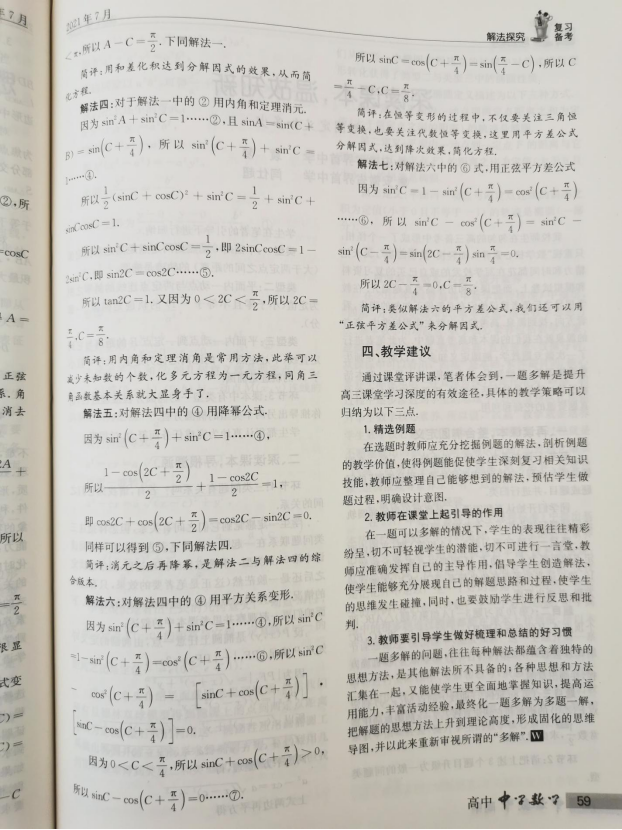 2021年7月
解法探究
复习
备考
<π,所以 A－C=π/2.下同解法一.
简评:用和差化积达到分解因式的效果,从而简
化方程.
解法四:对于解法一中的②用内角和定理消元.
因为 sin²A+sin²C=1……②,且 sinA=sin(C+
B)=sin(C+π/4),所以 sin²(C+π/4)+sin²C=
1……④.
所以 1/2(sinC+cosC)²+sin²C=1/2+sin²C+
sinCcosC=1.
所以 sin²C+sinCcosC=1/2,即 2sinCcosC=1－
2sin²C,即 sin2C=cos2C……⑤.
所以 tan2C=1.又因为 0<2C<π/2,所以 2C=
π/4,C=π/8.
简评:用内角和定理消角是常用方法,此举可以
减少未知数的个数,化多元方程为一元方程,同角三
角函数基本关系就大显身手了.
解法五:对解法四中的④用降幂公式.
因为 sin²(C+π/4)+sin²C=1……④,
所以 (1－cos(2C+π/2))/2+(1－cos2C)/2=1,
即 cos2C+cos(2C+π/2)=cos2C－sin2C=0.
同样可以得到⑤,下同解法四.
简评:消元之后再降幂,是解法二与解法四的综
合版本.
解法六:对解法四中的④用平方关系变形.
因为 sin²(C+π/4)+sin²C=1……④,所以 sin²C
=1－sin²(C+π/4)=cos²(C+π/4)……⑥,所以 sin²C
－cos²(C+π/4)=[sinC+cos(C+π/4)]·
[sinC－cos(C+π/4)]=0.
因为 0<C<π/4,所以 sinC+cos(C+π/4)>0,
所以 sinC－cos(C+π/4)=0……⑦.
所以 sinC=cos(C+π/4)=sin(π/4－C),所以 C
=π/4－C,C=π/8.
简评:在恒等变形的过程中,不仅要关注三角恒
等变换,也要关注代数恒等变换,这里用平方差公式
分解因式,达到降次效果,简化方程.
解法七:对解法六中的⑥式,用正弦平方差公式
因为 sin²C=1－sin²(C+π/4)=cos²(C+π/4)
……⑥,所以 sin²C－cos²(C+π/4)=sin²C－
sin²(C－π/4)=sin(2C－π/4)sin π/4=0.
所以 2C－π/4=0,C=π/8.
简评:类似解法六的平方差公式,我们还可以用
“正弦平方差公式”来分解因式.
四、教学建议
通过课堂评讲课,笔者体会到,一题多解是提升
高三课堂学习深度的有效途径,具体的教学策略可以
归纳为以下三点.
1.精选例题
在选题时教师应充分挖掘例题的解法,剖析例题
的教学价值,使得例题能促使学生深刻复习相关知识
技能,教师应整理自己能够想到的解法,预估学生做
题过程,明确设计意图.
2.教师在课堂上起引导的作用
在一题可以多解的情况下,学生的表现往往精彩
纷呈,切不可轻视学生的潜能,切不可进行一言堂,教
师应准确发挥自己的主导作用,倡导学生创造解法,
使学生能够充分展现自己的解题思路和过程,使学生
的思维发生碰撞,同时,也要鼓励学生进行反思和批
判.
3.教师要引导学生做好梳理和总结的好习惯
一题多解的问题,往往每种解法都蕴含着独特的
思想方法,是其他解法所不具备的;各种思想和方法
汇集在一起,又能使学生更全面地掌握知识,提高运
用能力,丰富活动经验,最终化一题多解为多题一解,
把解题的思想方法上升到理论高度,形成固化的思维
导图,并以此来重新审视所谓的“多解”.W
高中 中学数学 59